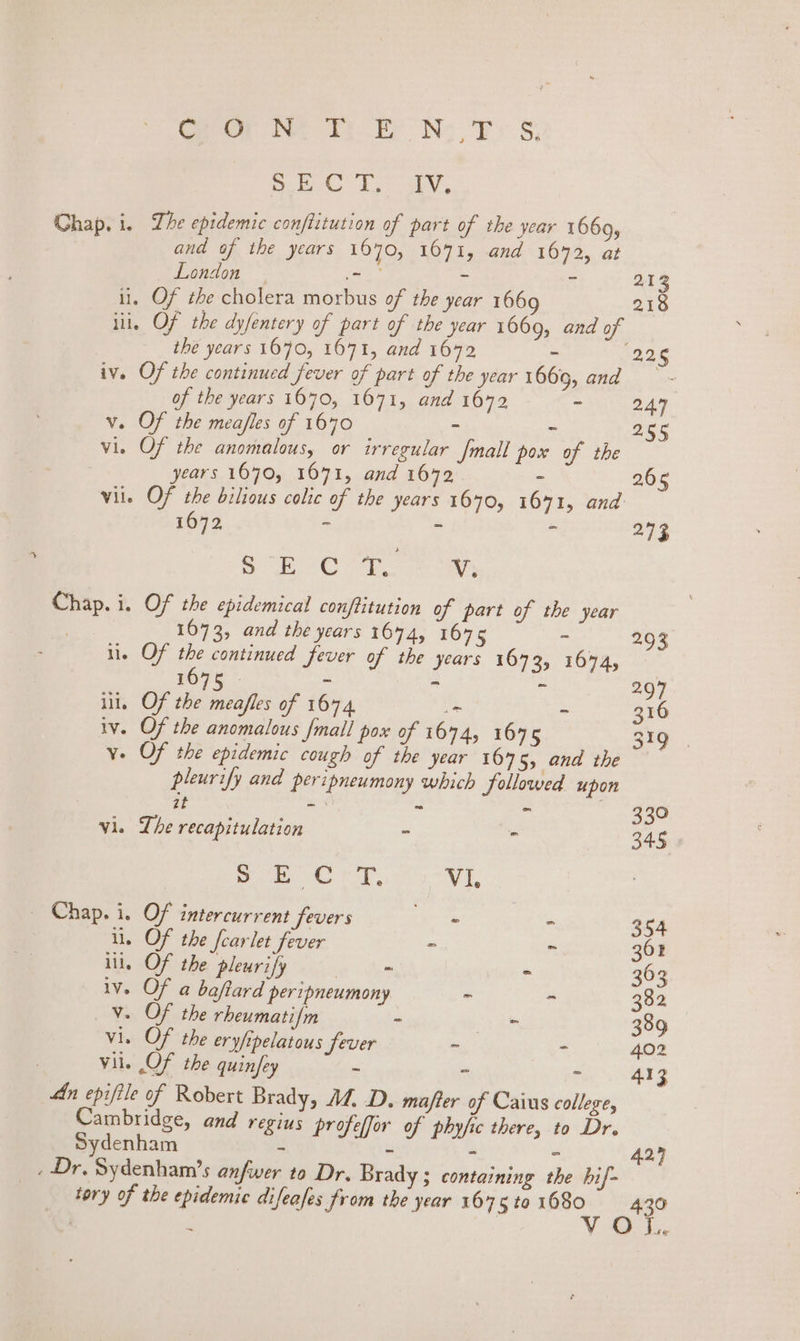 CONTENTS.
SECT. IV.
Chap. i. The epidemic conſtitution of part of the year 1669,
and of the years 1670, 1671, and 1672, at
London - - - 213
ii. Of the cholera morbus of the year 1669 218
iii. Of the dyſentery of part of the year 1669, and of
the years 1670, 1671, and 1672 - 225
iv. Of the continued fever of part of the year 1669, and
of the years 1670, 1671, and 1672 - 247
v. Of the meaſles of 1670 - - 255
vi. Of the anomalous, or irregular ſmall pox of the
years 1670, 1671, and 1672 - 265
vii. Of the bilious colic of the years 1670, 1671, and
1672 - - - 273
SECT. V.
Chap. i. Of the epidemical conſtitution of part of the year
1673, and the years 1674, 1675 - 293
ii. Of the continued fever of the years 1673, 1674,
1675 - - - 297
iii. Of the meaſles of 1674 - - 316
iv. Of the anomalous ſmall pox of 1674, 1675 319
v. Of the epidemic cough of the year 1675, and the
pleuriſy and peripneumony which followed upon
it - - - 330
vi. The recapitulation - - 345
SECT. VI.
Chap. i. Of intercurrent fevers - - 354
ii. Of the ſcarlet fever - - 361
iii. Of the pleuriſy - - 363
iv. Of a baſtard peripneumony - - 382
v. Of the rheumatiſm - - 389
vi. Of the eryſipelatous fever - - 402
vii. Of the quinſey - - - 413
An epiſtle of Robert Brady, M. D. maſter of Caius college,
Cambridge, and regius profeſſor of phyſic there, to Dr.
Sydenham - - - - 427
Dr. Sydenham's anſwer to Dr. Brady; containing the hiſ-
tory of the epidemic diſeaſes from the year 1675 to 1680 430
VOL.